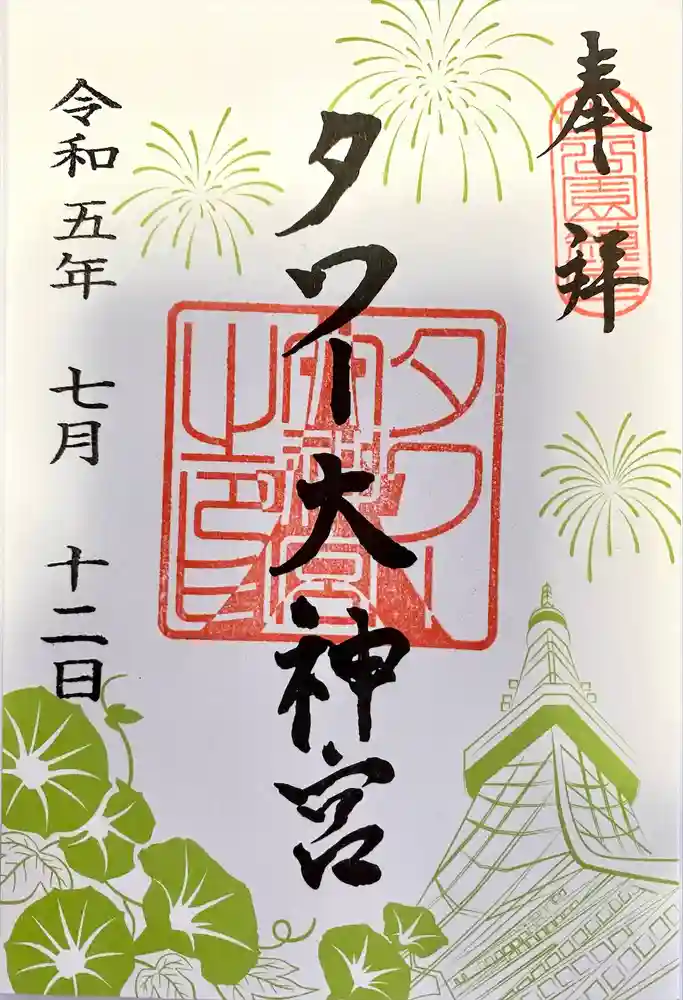 奉拝
タワー大神宮
令和五年 七月 十二日
タワー
大神宮
之印